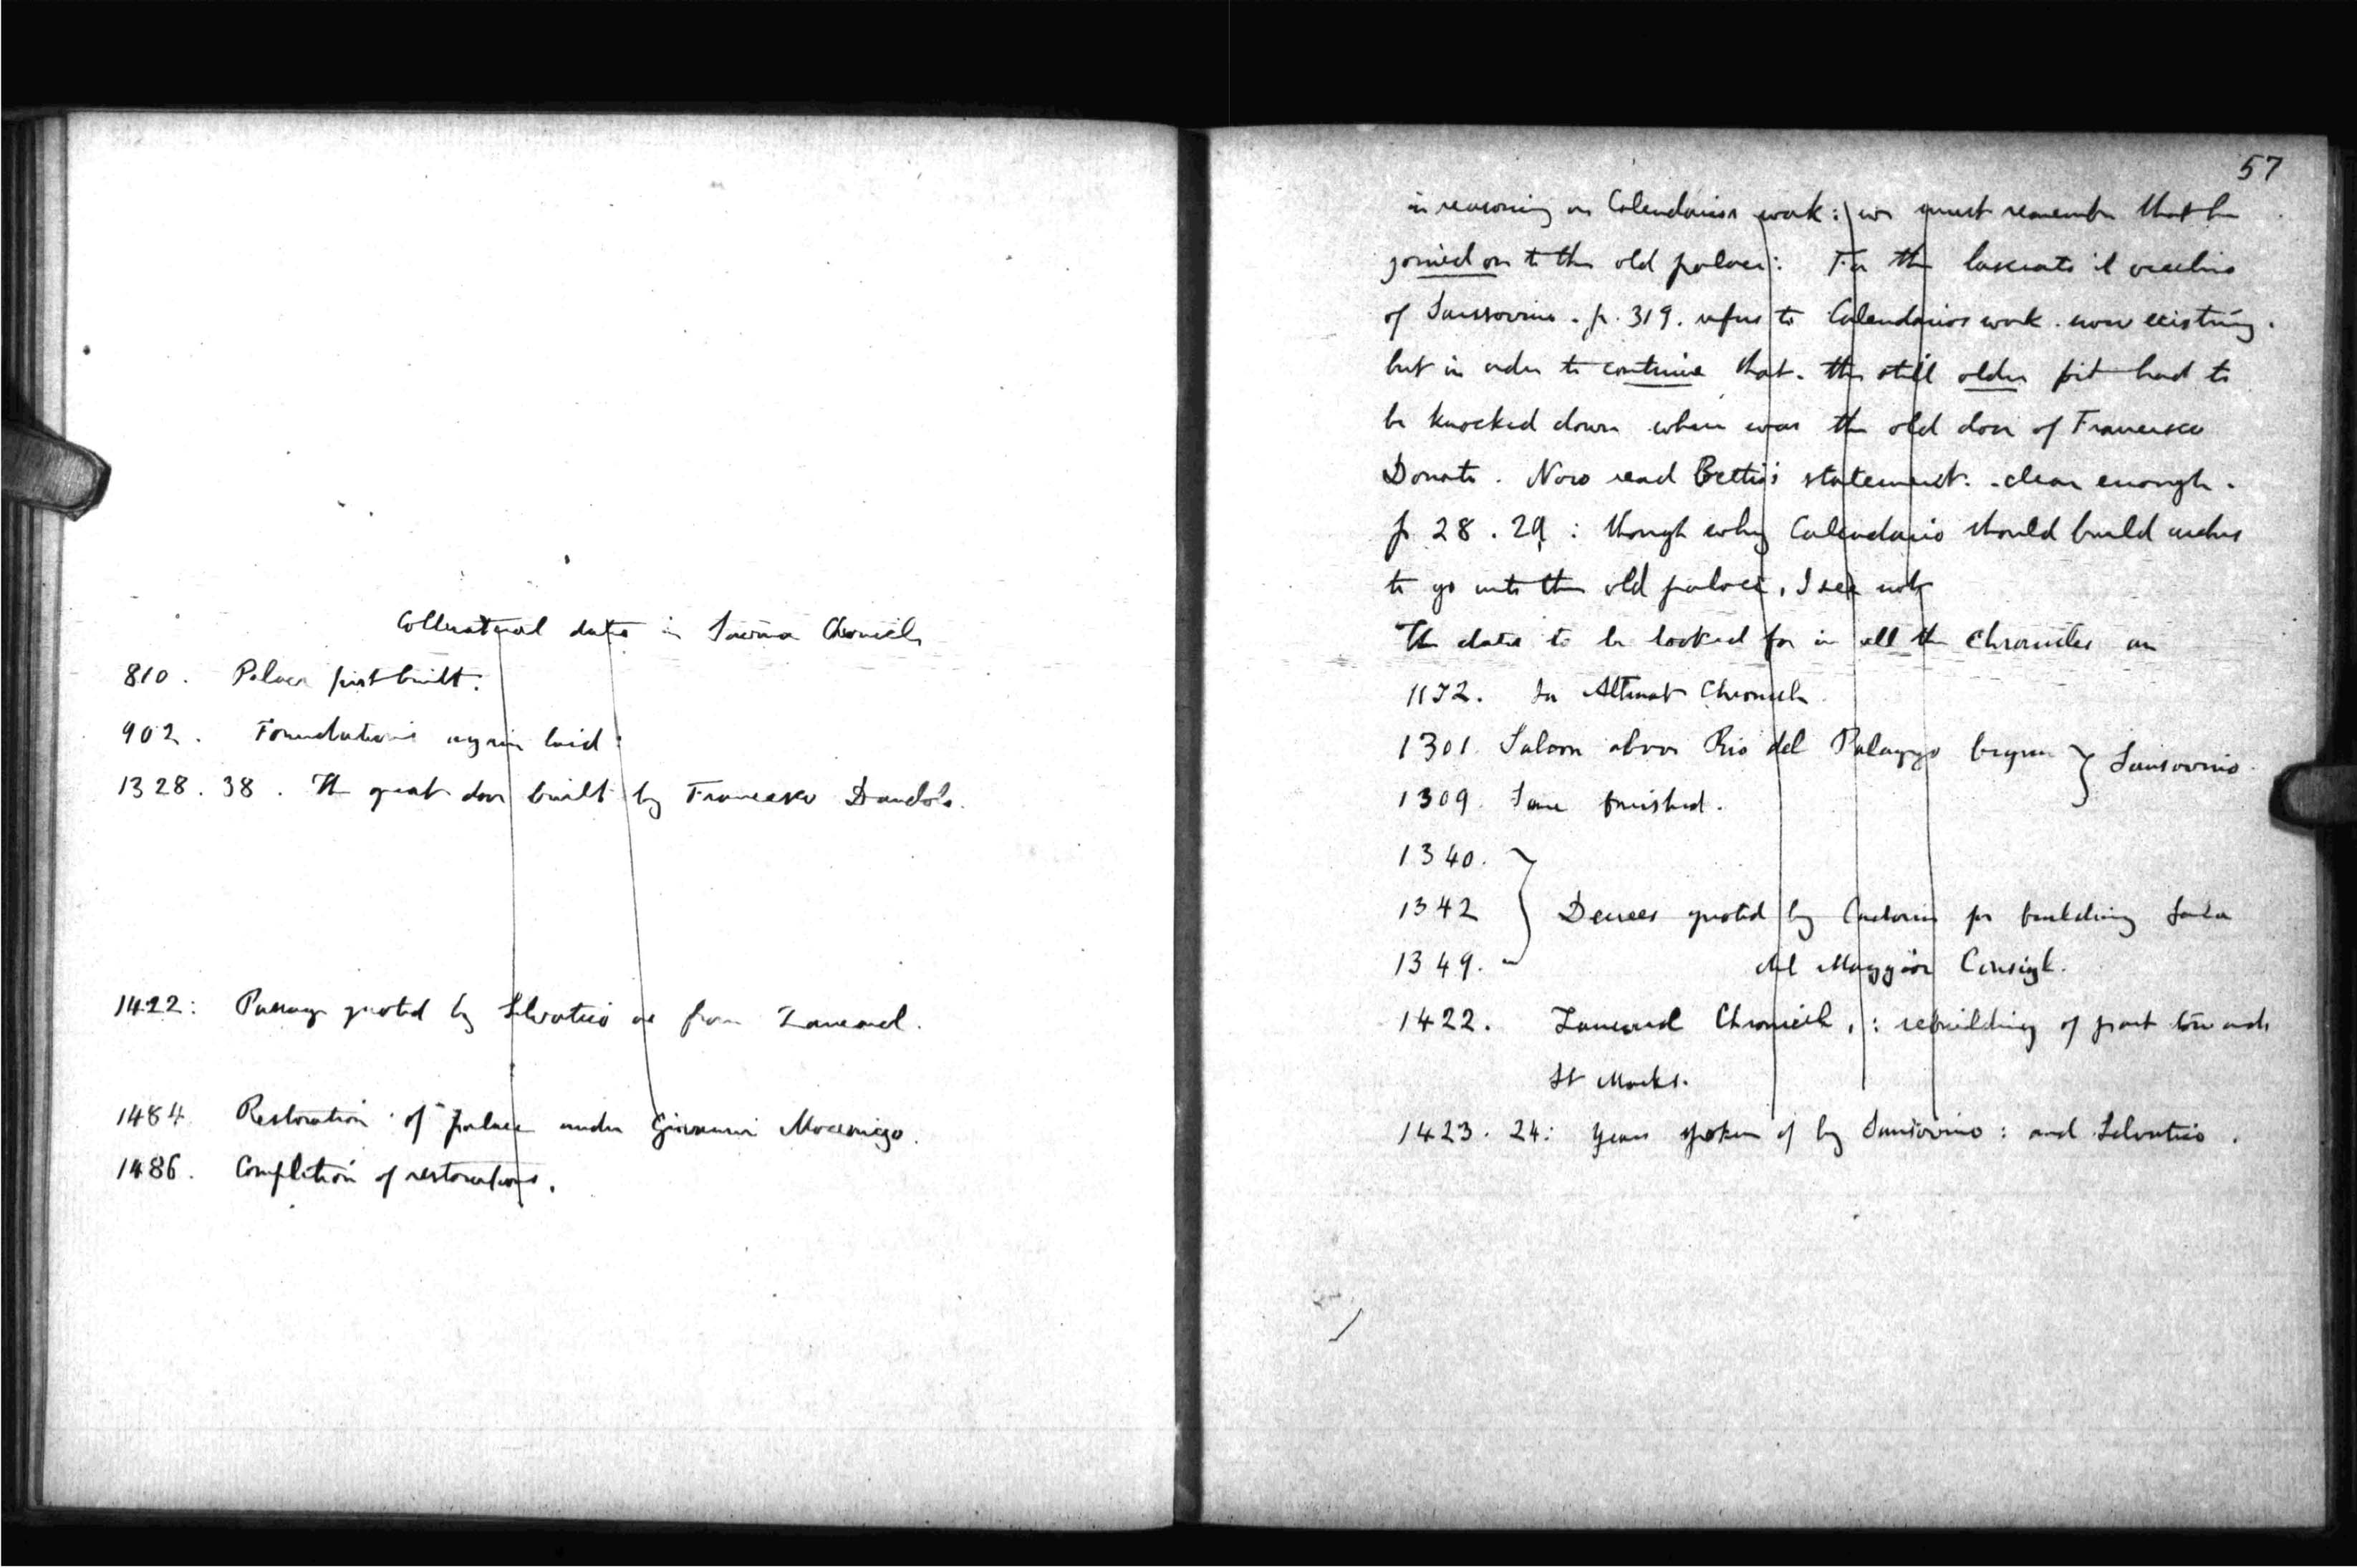 Collateral dates in Savina Chronicle
810. Palace first built.
902. Foundations again laid:
1328. 38. The great door built by Francesco Dandolo.
1422: Passage quoted by Selvatico as from Zancarol.
1484 Restoration of palace under Giovanni Mocenigo.
1486. Completion of restorations.
57
in reasoning on Calendarios work: we must remember that he
joined on to the old palace: For the lasciato il vecchio
of Sansovino. p. 319. refers to Calendarios work. now existing.
but in order to continue that. the still older bit had to
be knocked down where was the old door of Francesco
Donato. Now read Bettio's statement. clear enough.
p 28. 29: though why Calendario should build arches
to go into the old palace, I see not
The dates to be looked for in all the Chronicles are
1172. In Altinat Chronicle.
1301. Saloon above Rio del Palazzo begun } Sansovino.
1309. Same finished.
1340.
1342 } Decrees quoted by Cadorin for building Sala
1349. del Maggior Consigl.
1422. Zancarol Chronicle,: rebuilding of part towards
St Marks.
1423. 24: years spoken of by Sansovino: and Selvatico.